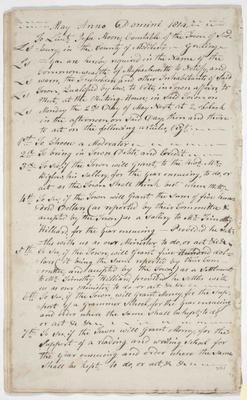 May Anno Domini 1814.
To Lieut. Jesse Moore, Constable of the Town of Sud-
bury, in the County of Middlesex — Greeting
You are hereby required in the Name of the
Commonwealth of Massachusetts to Notify and
warn the Freeholders and other Inhabitants of said
Town, Qualified by law to Vote in town affairs to
Meet at the Meeting House in said Town on
Monday the 23d Day of May Next at 2 o'Clock
in the afternoon on said Day then and there
to act on the following articles, (Viz)
1st To Choose a Moderator
2d To bring in Town Debts and Credit
3d To see if the Town will Grant to the Rev. Mr.
his Sallery for the Year ensuing, to do, or
act as the Town Shall think best when met
4th To See if the Town will Grant the Sum of
Dollars (as reported by their Committee &
accepted by the Town) as a Sallery to Mr. Timothy
Hilliard for the Year ensuing — Provided he Settle
with us as our Minister to do or act &c
5th To See if the Town will Grant five hundred dol-
lars, (it being the Sum reported by their Com-
mittee and accepted by the Town) as a Settlement
to Mr. Timothy Hilliard provided he Settle with
us as our Minister to do or act &c
6th To See if the Town will Grant Money for the Sup-
port of a Grammer School for the Year ensuing
and order where the Same Shall be kept; to do
or act &c
7th To See if the Town will Grant Money for the
Support of a reading and writing School for
the Year ensuing and order where the Same
Shall be kept to do, or act &c